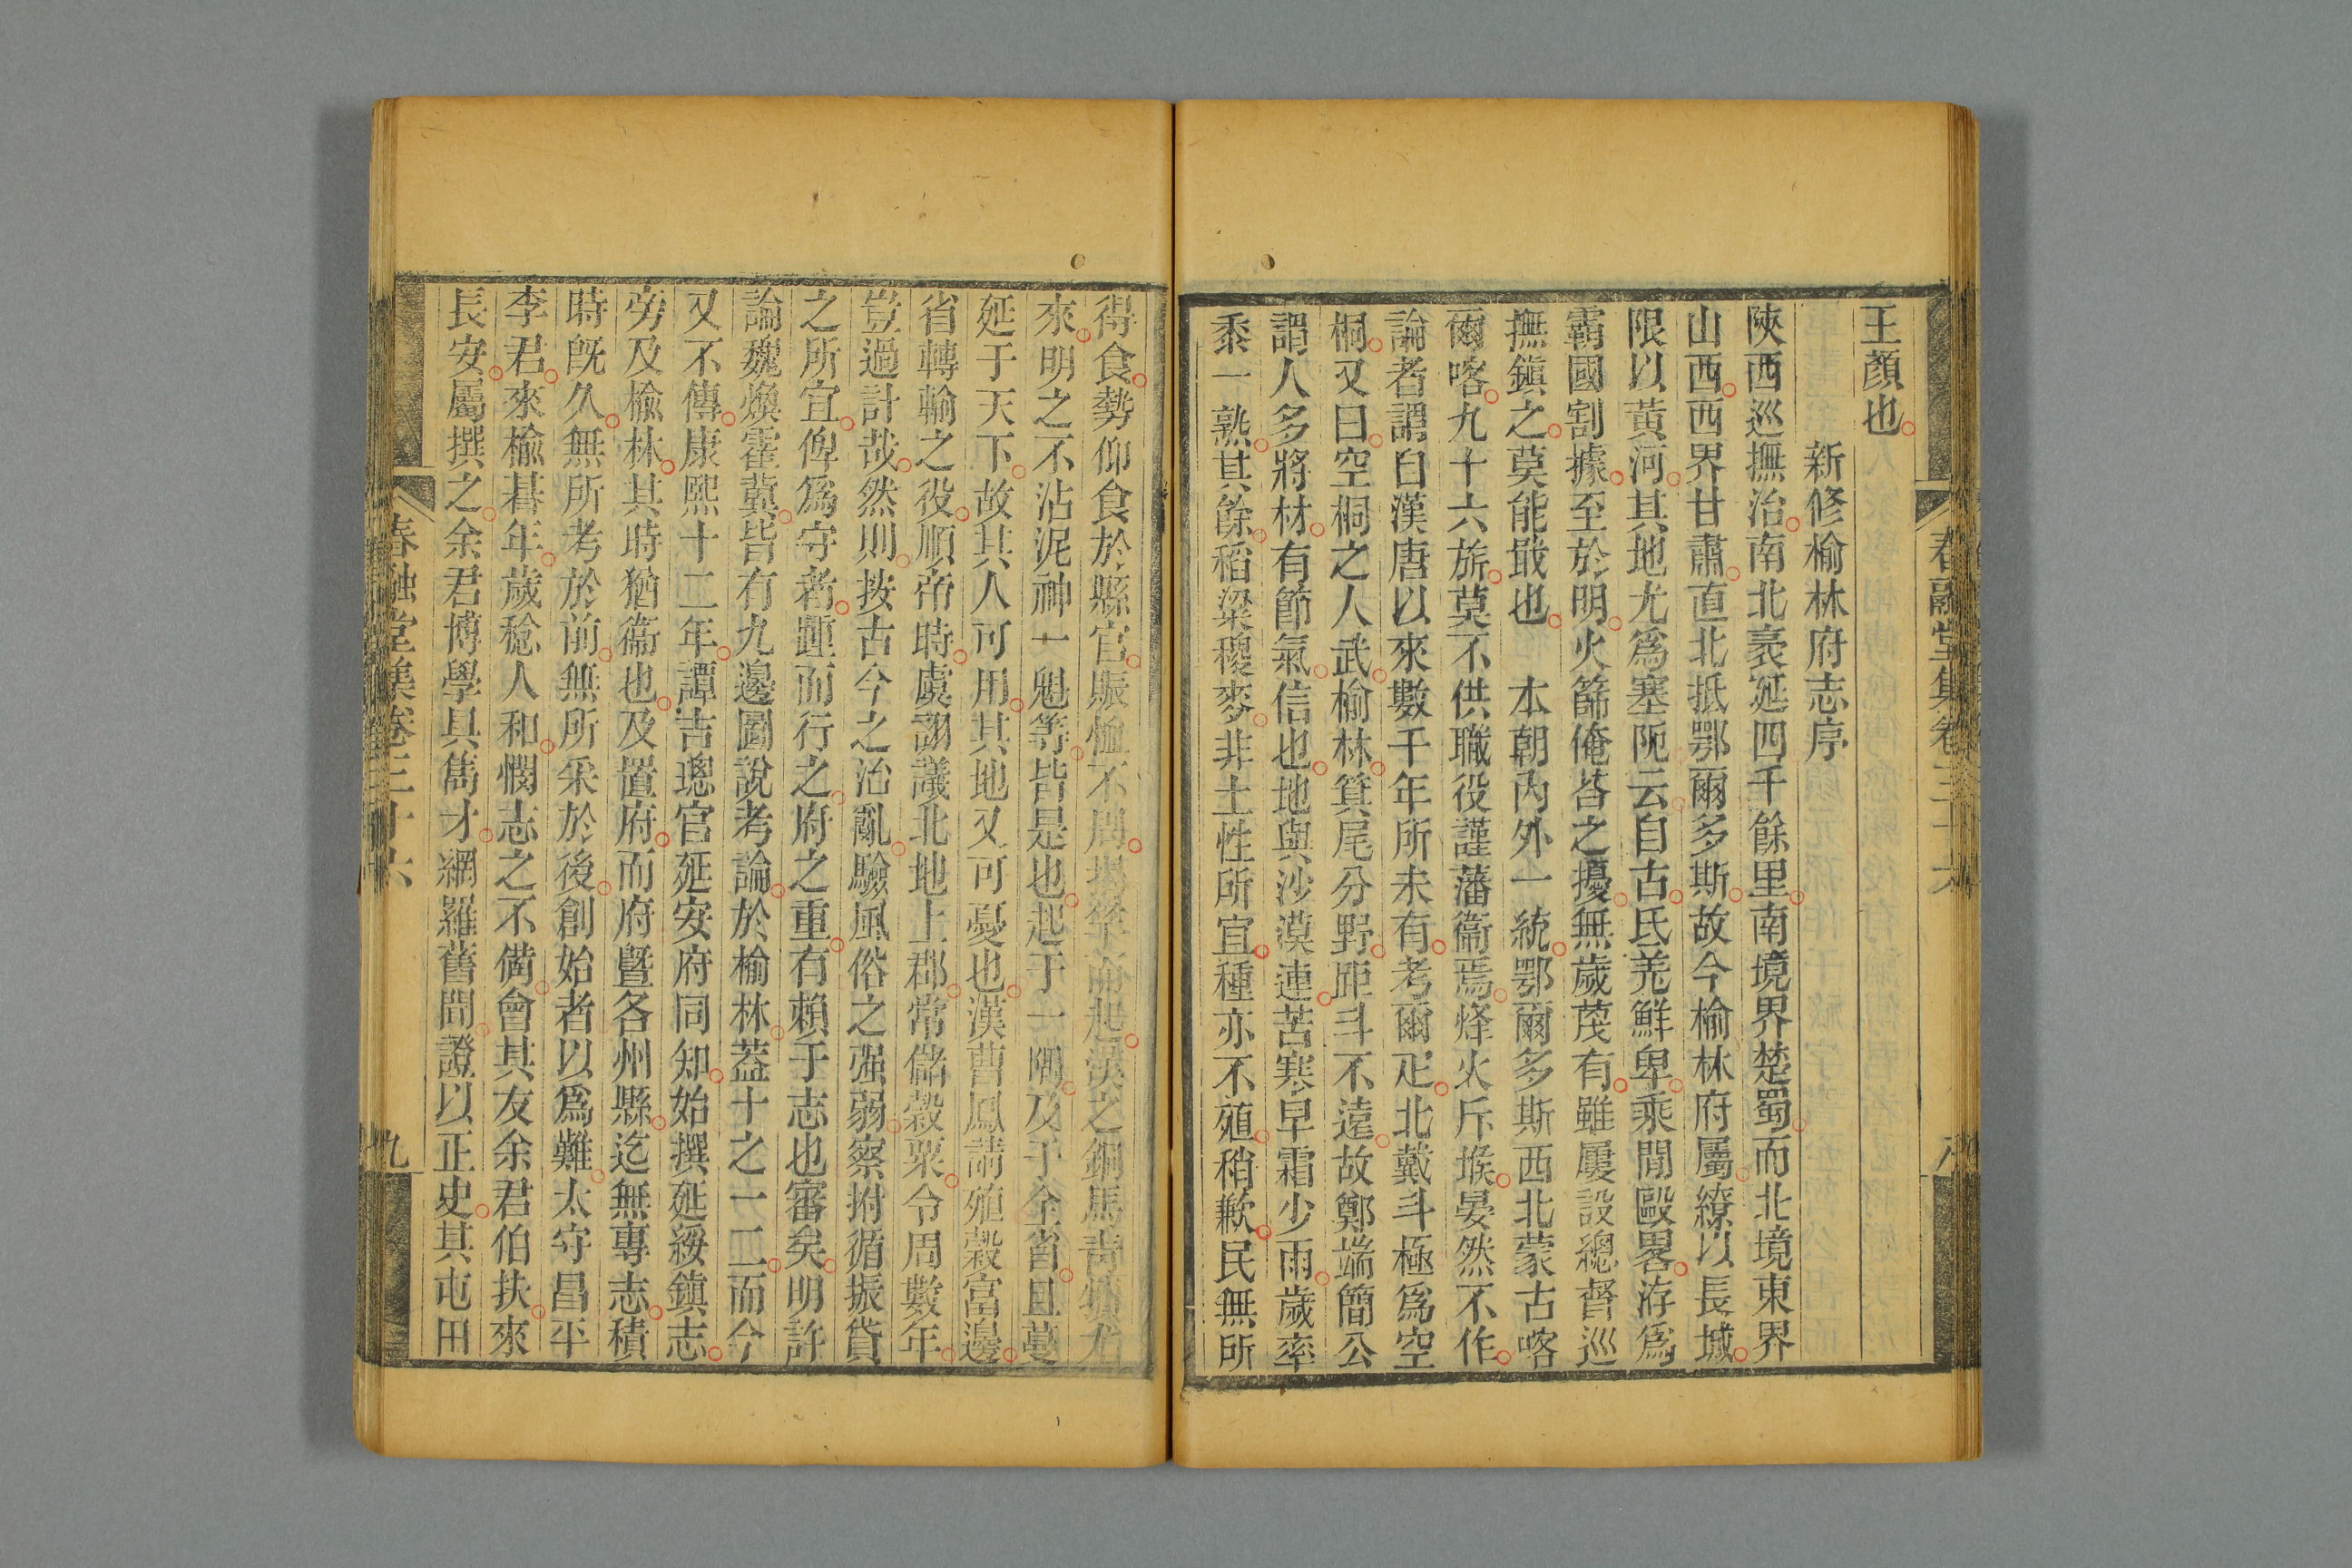 王顏也
新修榆林府志序
陝西巡撫治南北袤延四千餘里南境界楚蜀而北境東界
山西西界甘肅直北抵鄂爾多斯故今榆林府屬繚以長城
限以黃河其地尤爲塞阨云自古氐羌鮮卑乘閒毆畧洊爲
霸國割據至於明火篩俺荅之擾無歲蔑有雖屢設總督巡
撫鎮之莫能戢也　本朝內外一統鄂爾多斯西北蒙古喀
爾喀九十六旂莫不供職役謹藩衞焉烽火斥堠晏然不作
論者謂自漢唐以來數千年所未有考爾疋北戴斗極爲空
桐又曰空桐之人武榆林箕尾分野距斗不遠故鄭端簡公
謂人多將材有節氣信也地與沙漠連苦寒早霜少雨歲率
黍一熟其餘稻粱穜麥非土性所宜種亦不殖稍歉民無所
春融堂集卷三十六
八
得食勢仰食於縣官賑恤不周揭竿而起漢之銅馬靑犢尤
來明之不沾泥神一魁等皆是也起于一隅及于全省且蔓
延于天下故其人可用其地又可憂也漢曹鳳請殖穀富邊
省轉輸之役順帝時虞詡議北地上郡常儲穀粟令周數年
豈過計哉然則按古今之治亂驗風俗之强弱察拊循振貸
之所宜俾爲守者踵而行之府之重有賴于志也審矣明許
論魏煥霍冀皆有九邊圖說考論於榆林蓋十之一二而今
又不傳康熙十二年譚吉璁官延安府同知始撰延綏鎮志
旁及榆林其時猶衞也及置府而府曁各州縣迄無專志積
時旣久無所考於前無所采於後創始者以爲難太守昌平
李君來榆朞年歲稔人和憫志之不備會其友余君伯扶來
長安屬撰之余君博學具雋才網羅舊聞證以正史其屯田
春融堂集卷三十六
九